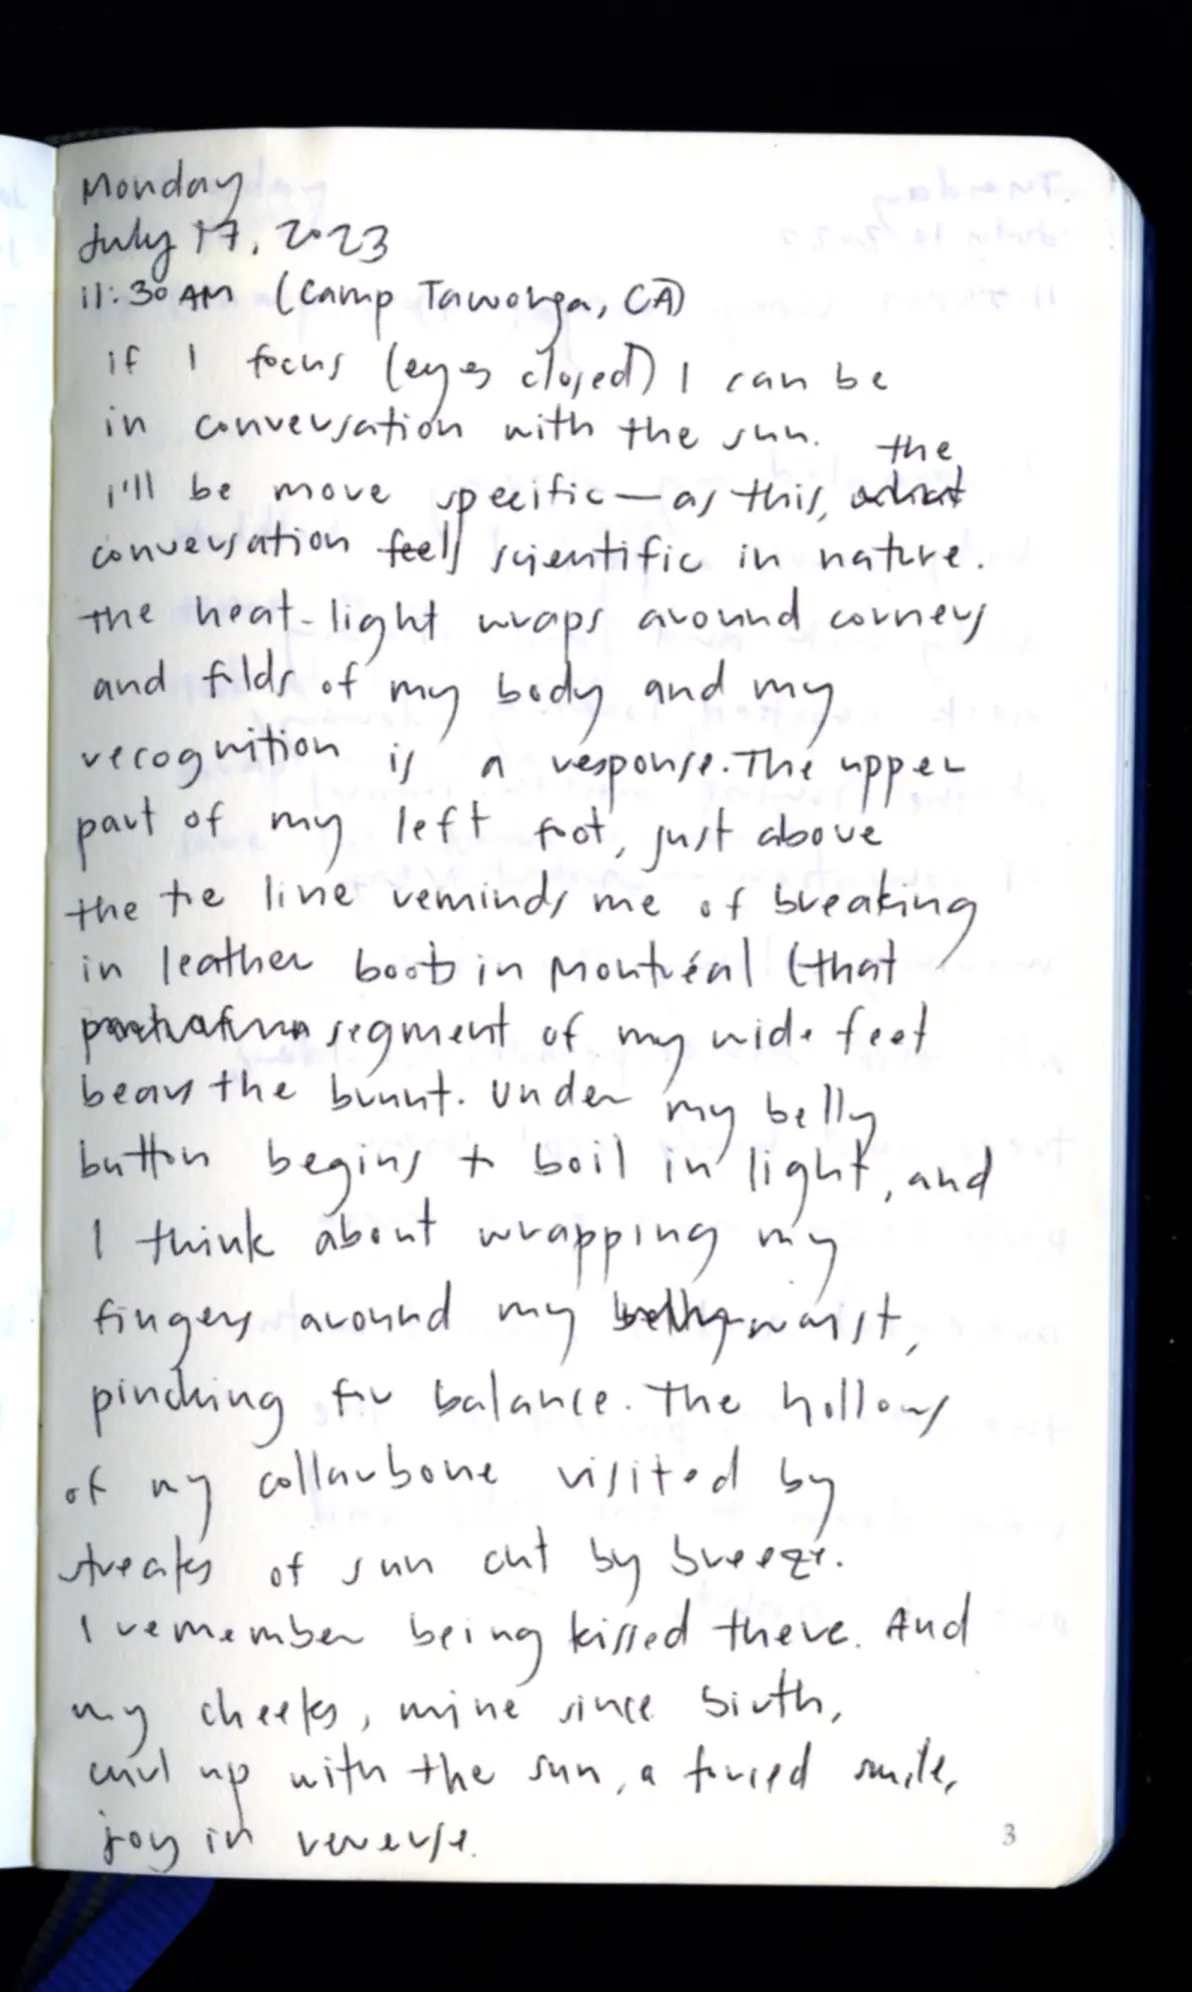 Monday
July 17, 2023
11:30 AM (Camp Tawonga, CA)
if I focus (eyes closed) I can be
in conversation with the sun.
the
i'll be more specific — as this,
conversation feels scientific in nature.
the heat-light wraps around corners
and folds of my body and my
recognition is a response. The upper
part of my left foot, just above
the toe line reminds me of breaking
in leather boots in Montréal (that
segment of my wide feet
bears the brunt. Under my belly
button begins to boil in light, and
I think about wrapping my
fingers around my belly waist,
pinching for balance. The hollows
of my collarbone visited by
streaks of sun cut by breeze.
I remember being kissed there. And
my cheeks, mine since birth,
curl up with the sun, a forced smile,
joy in reverse.
3